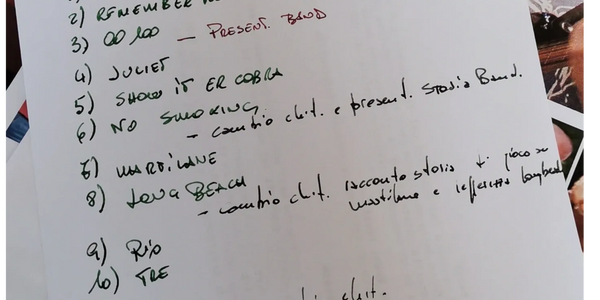 2) REMEMBER
3) 00 100 — PRESENT. BAND
4) JULIET
5) SHOW IT ER COBRA
6) NO SMOKING
- cambio chit. e present. Storia Band.
7) MARZILANE
8) LONG BEACH
- cambio chit. racconto storia di gioco su
e lombardi
9) RIO
10) TRE
chit.